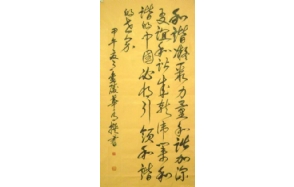 和谐凝聚力量和谐加深
友谊和谐成就伟業和
谐的中国必将引领和谐
的世界
甲午
書